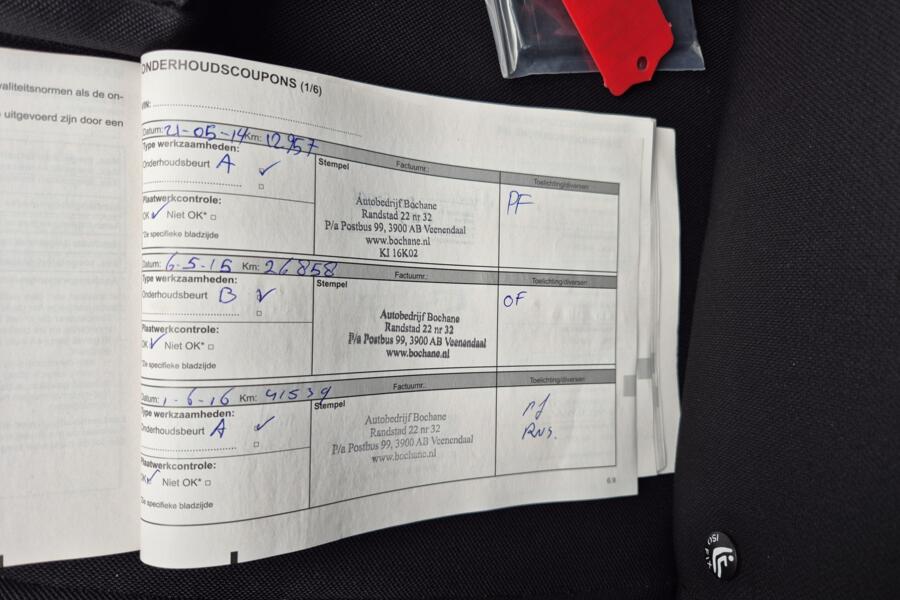 valiteitsnormen als de on-
uitgevoerd zijn door een
ONDERHOUDSCOUPONS (1/6)
VIN:
Datum: 21-05-14 Km: 12957
Factuurnr.:
Toelichting/diversen
Type werkzaamheden:
Onderhoudsbeurt A ✓
Stempel
Autobedrijf Bochane
Randstad 22 nr 32
P/a Postbus 99, 3900 AB Veenendaal
www.bochane.nl
KI 16K02
PF
Plaatwerkcontrole:
OK ✓ Niet OK* □
*Zie specifieke bladzijde
Datum: 6-5-15 Km: 26858
Factuurnr.:
Toelichting/diversen
Type werkzaamheden:
Onderhoudsbeurt B ✓
Stempel
Autobedrijf Bochane
Randstad 22 nr 32
P/a Postbus 99, 3900 AB Veenendaal
www.bochane.nl
OF
Plaatwerkcontrole:
OK ✓ Niet OK* □
*Zie specifieke bladzijde
Datum: 1-6-16 Km: 41539
Factuurnr.:
Toelichting/diversen
Type werkzaamheden:
Onderhoudsbeurt A ✓
Stempel
Autobedrijf Bochane
Randstad 22 nr 32
P/a Postbus 99, 3900 AB Veenendaal
www.bochane.nl
Plaatwerkcontrole:
OK ✓ Niet OK* □
*Zie specifieke bladzijde
6.9
ISOFIX